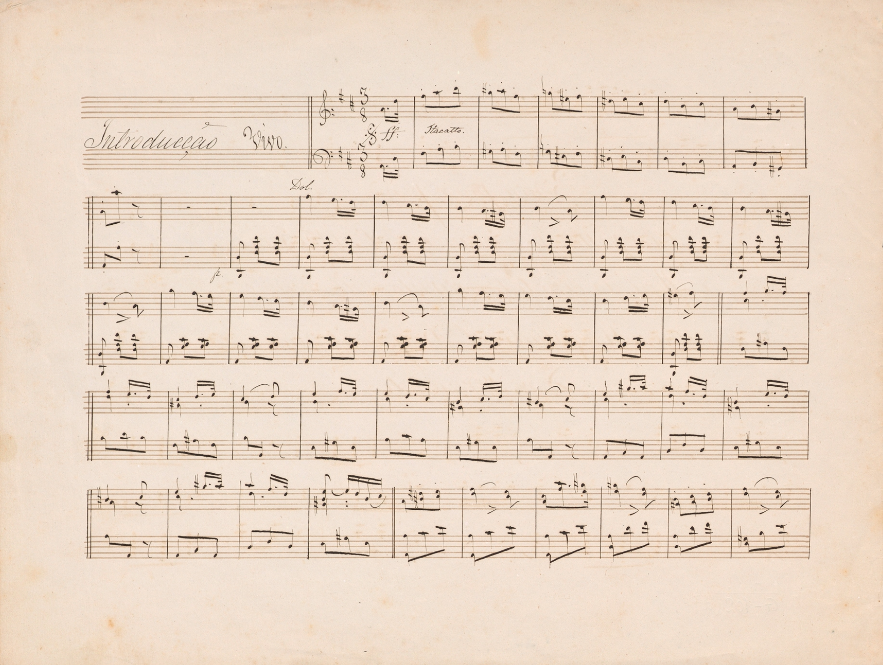 Introducção Vivo. ff: Stacatto.
Dol.
p